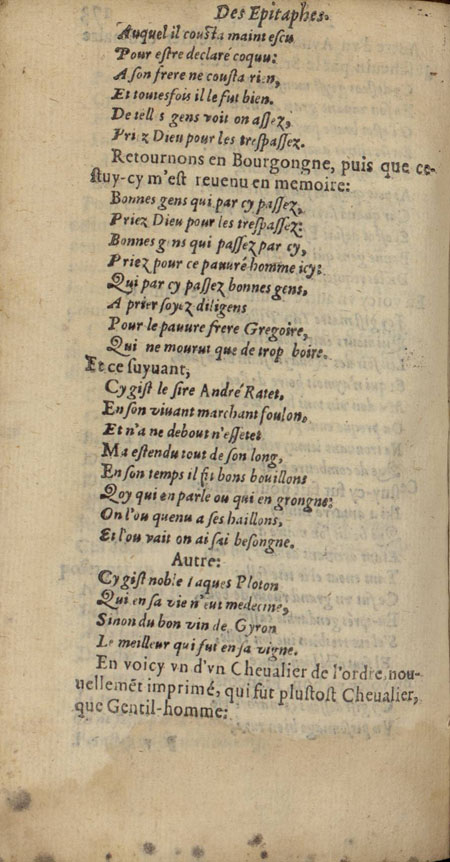 Des Epitaphes.
Auquel il cousta maint escu
Pour estre declaré coquu:
A son frere ne cousta rien,
Et toutesfois il le fut bien.
De tell s gens voit on assez,
Pri z Dieu pour les trespassez.
Retournons en Bourgongne, puis que ce-
stuy-cy m'est reuenu en memoire:
Bonnes gens qui par cy passez,
Priez Dieu pour les trespassez:
Bonnes g ns qui passez par cy,
Priez pour ce pauure homme icy:
Qui par cy passez bonnes gens,
A prier soyez diligens
Pour le pauure frere Gregoire,
Qui ne mourut que de trop boire.
Et ce suyuant,
Cy gist le sire André Ratet,
En son viuant marchant foulon,
Et n'a ne debout n'essetet
Ma estendu tout de son long,
En son temps il fit bons bouillons
Qoy qui en parle ou qui en grongne:
On l'ou quenu a ses haillons,
Et l'ou vait on ai sai besongne.
Autre:
Cy gist noble Iaques Ploton
Qui en sa vie n'eut medecine,
Sinon du bon vin de Gyron
Le meilleur qui fut en sa vigne.
En voicy vn d'vn Cheualier de l'ordre nou-
uellemēt imprimé, qui fut plustost Cheualier,
que Gentil-homme: